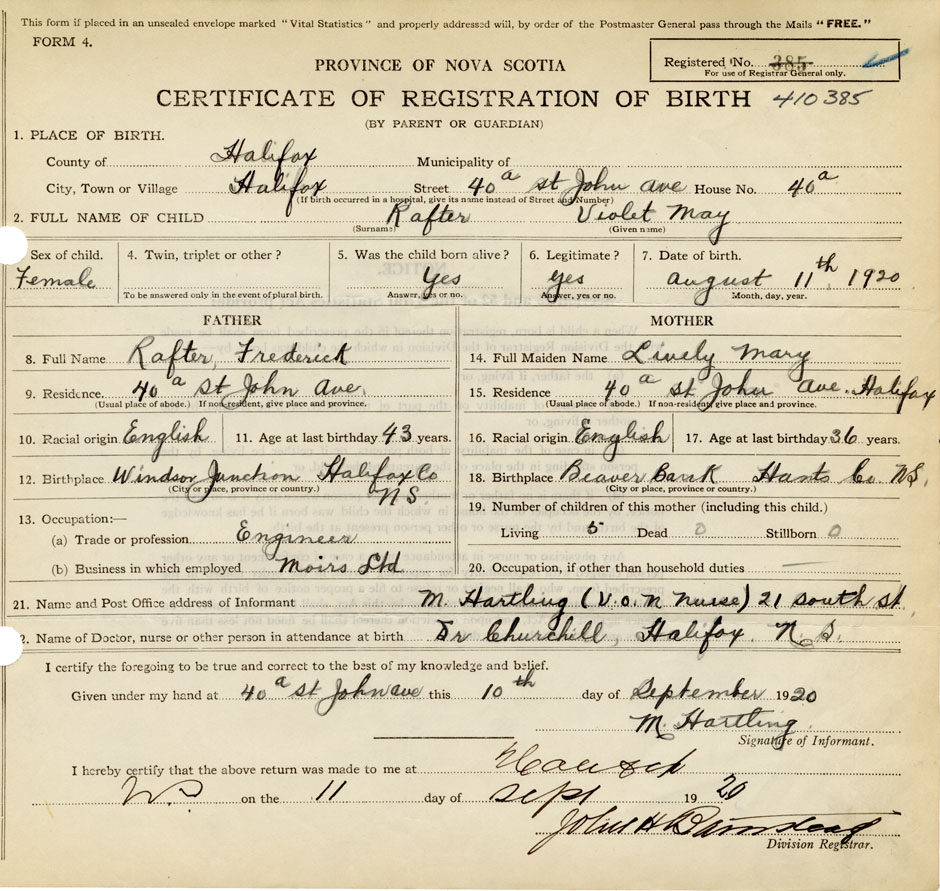 This form if placed in an unsealed envelope marked "Vital Statistics" and properly addressed will, by order of the Postmaster General pass through the Mails "FREE."
FORM 4.
Registered No. 385
For use of Registrar General only.
PROVINCE OF NOVA SCOTIA
CERTIFICATE OF REGISTRATION OF BIRTH 410385
(BY PARENT OR GUARDIAN)
1. PLACE OF BIRTH.
County of Halifax Municipality of
City, Town or Village Halifax Street 40a St John Ave House No. 40a
(If birth occurred in a hospital, give its name instead of Street and Number)
2. FULL NAME OF CHILD Rafter Violet May
(Surname) (Given name)
Sex of child. 4. Twin, triplet or other? 5. Was the child born alive? 6. Legitimate? 7. Date of birth.
Female Yes Yes August 11th, 1920
To be answered only in the event of plural birth. Answer, yes or no. Answer, yes or no. Month, day, year.
FATHER MOTHER
8. Full Name Rafter, Frederick 14. Full Maiden Name Lively Mary
9. Residence. 40a St John Ave. 15. Residence 40a St John Ave. Halifax
(Usual place of abode.) If non-resident, give place and province. (Usual place of abode.) If non-resident, give place and province.
10. Racial origin English 11. Age at last birthday 43 years. 16. Racial origin English 17. Age at last birthday 36 years.
12. Birthplace Windsor Junction Halifax Co NS 18. Birthplace Beaver Bank Hants Co. NS.
(City or place, province or country.) (City or place, province or country.)
13. Occupation:— 19. Number of children of this mother (including this child.)
(a) Trade or profession Engineer Living 5 Dead 0 Stillborn 0
(b) Business in which employed Moirs Ltd 20. Occupation, if other than household duties —
21. Name and Post Office address of Informant M. Hartling (V.O.N Nurse) 21 South St.
2. Name of Doctor, nurse or other person in attendance at birth Dr Churchill, Halifax. N.S.
I certify the foregoing to be true and correct to the best of my knowledge and belief.
Given under my hand at 40a St John Ave this 10th day of September 1920
M. Hartling
Signature of Informant.
I hereby certify that the above return was made to me at
on the 11 day of Sept 1920
John H
Division Registrar.